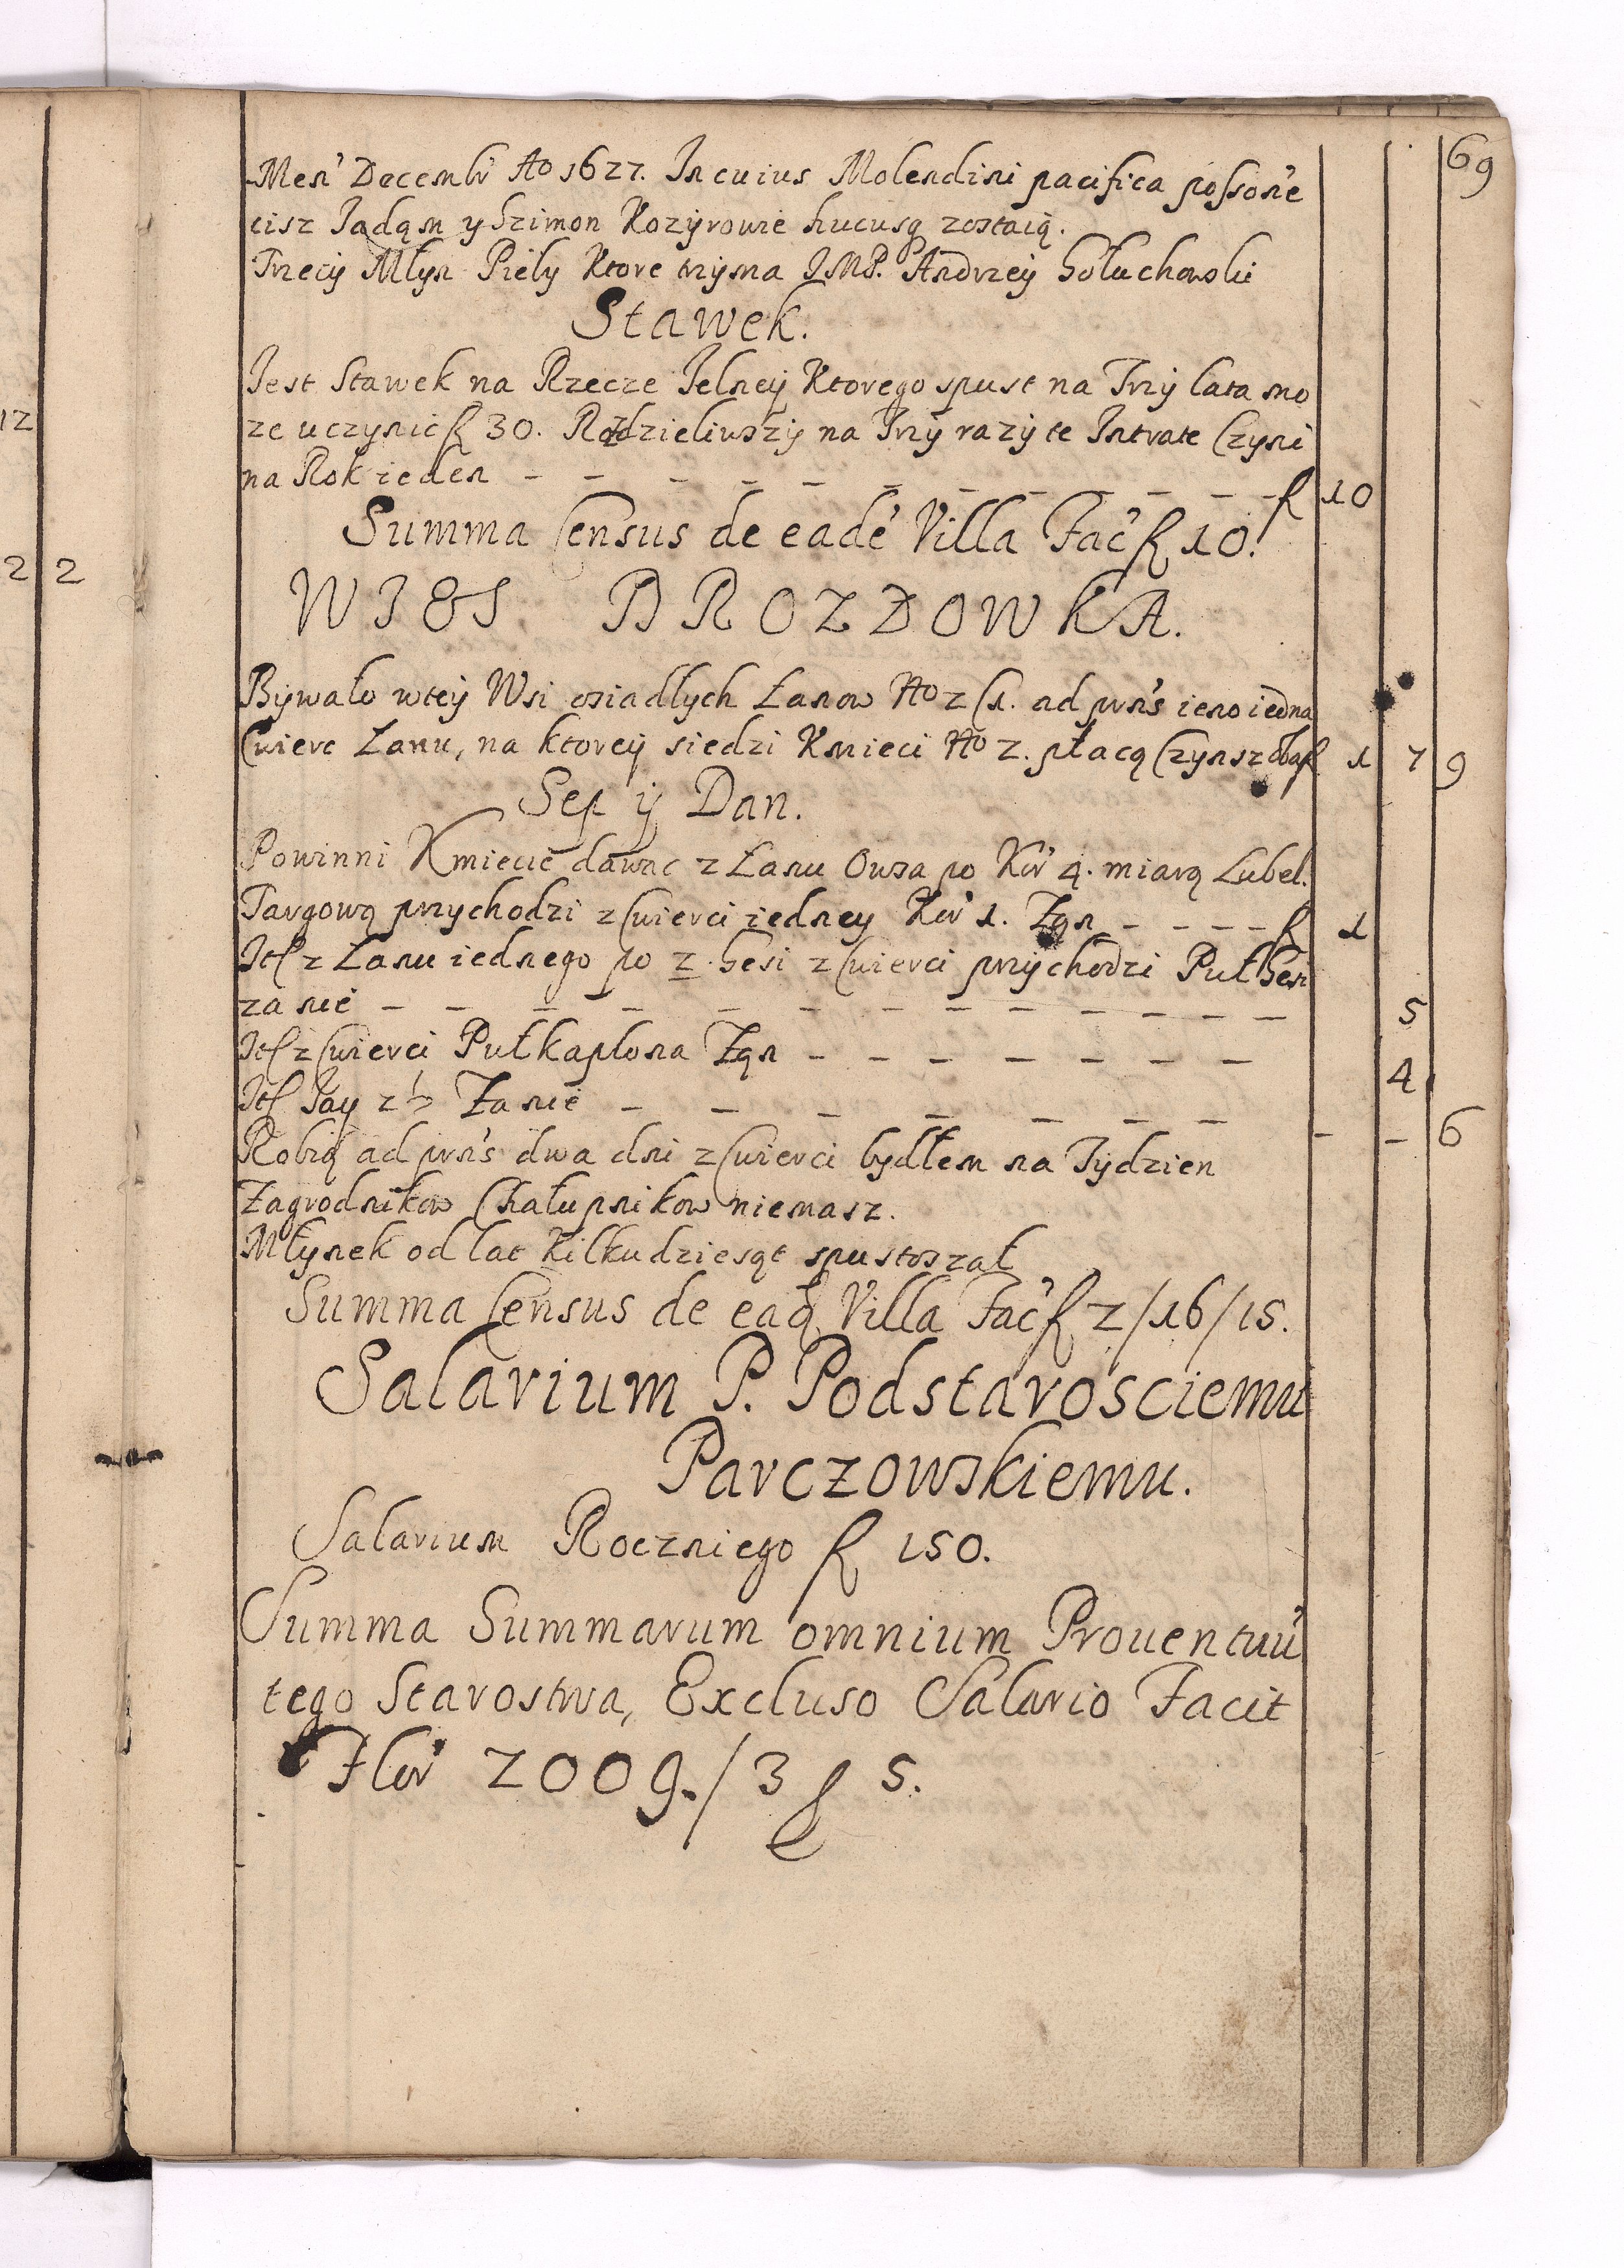 69
Men' Decembr' Ao 1627. In cuius Molendini pacifica possone
cisz Jadąm y Szimon Kozyrowie hucusq zostaią.
Trzeciy Młyn Piely Ktore trzyma JMP. Andrzey Gołuchowski
Stawek.
Jest Stawek na Rzecze Jelney Ktorego spust na Trzy lata mo
ze uczynic f 30. Rozdzieliwszy na Trzy razy te Intrate Czyni
na Rok ieden - - - - - - - - - - f 10
Summa Census de eadé Villa Fac' f 10.
WIES BROZDOWKA.
Bywało wtey Wsi osiadłych Łanow No 2 ad prns ieno iedna
Cwierc Łanu, na ktorey siedzi Kmieci No 2. płacą Czynsz oba f 1 7 9
Sep y Dan.
Powinni Kmiecie dawac z Łanu Owsa po Kor' 4. miarą Lubel.
Targową przychodzi z Cwierci iedney Kor' 1. Zgn - - - - f 1
Jtē z Łanu iednego po 2. Gesi z Cwierci przychodzi Puł Gesi
za nie - - - - - - - - - - 5
Jtē z Cwierci Puł kapłona Zgn - - - - - - 4
Jtē Jay z Za nie - - - - - - - - 6
Robią ad prns dwa dni z Cwierci bydłem na Tydzien
Zagrodnikow Chałupnikow niemasz.
Młynek od lat Kilkudziesąt spustoszał
Summa Census de eadē Villa Fac' f 2/16/15.
Salarium P. Podstarosciemu
Parczowskiemu.
Salarium Roczniego f 150.
Summa Summarum omnium Prouentuū
tego Starostwa, Excluso Salario Facit
Flor' 2009./3 5.
12
2 2